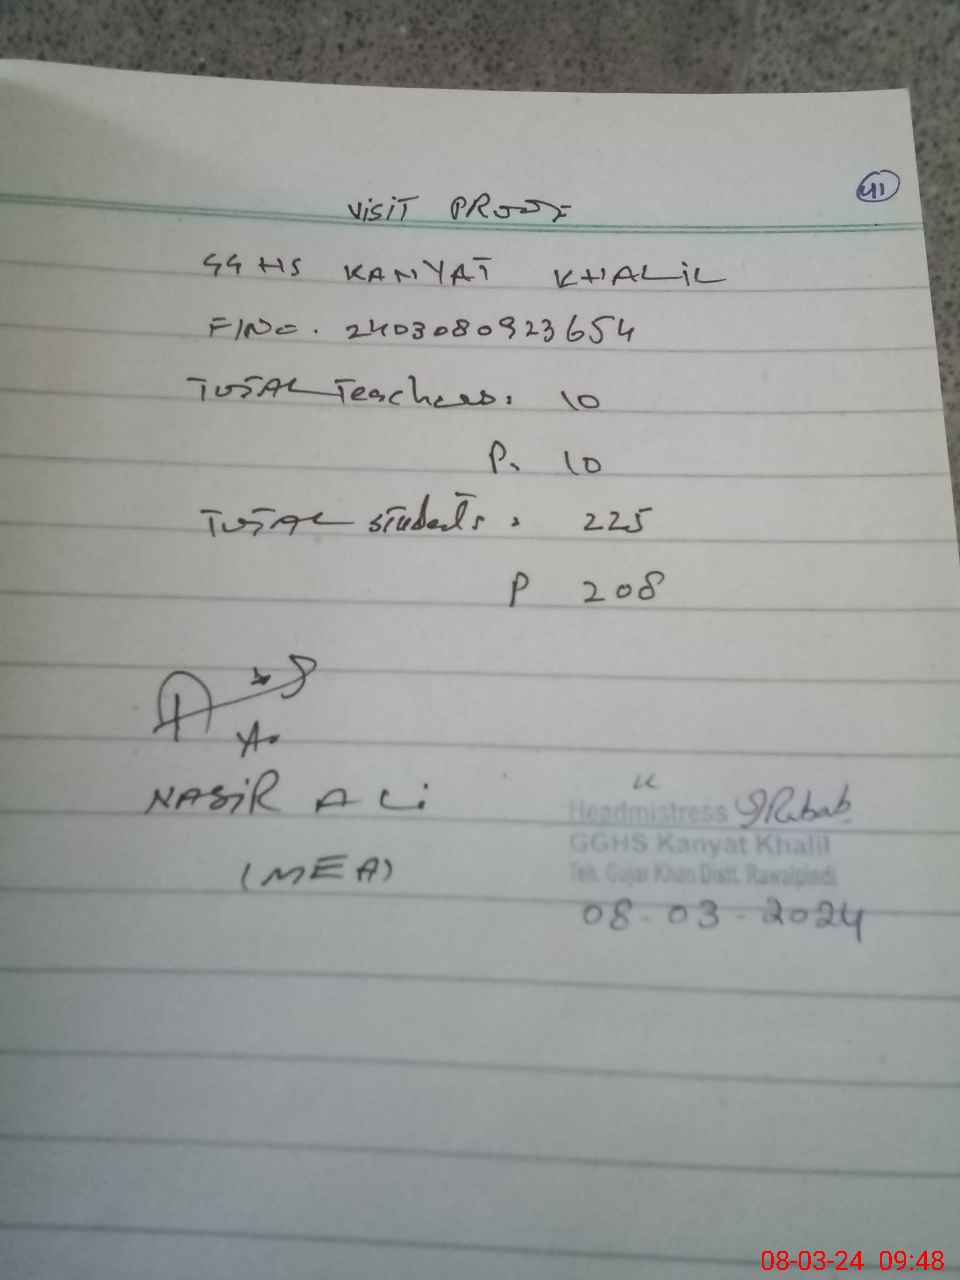 41
VISIT PROOF
GGHS KANYAT KHALIL
F/NO. 2403080923654
TOTAL Teachers. 10
P. 10
TOTAL students. 225
P 208
NASIR ALi
(MEA)
Headmistress Rubab
GGHS Kanyat Khalil
Teh. Gujar Khan Distt. Rawalpindi
08-03-2024
08-03-24 09:48